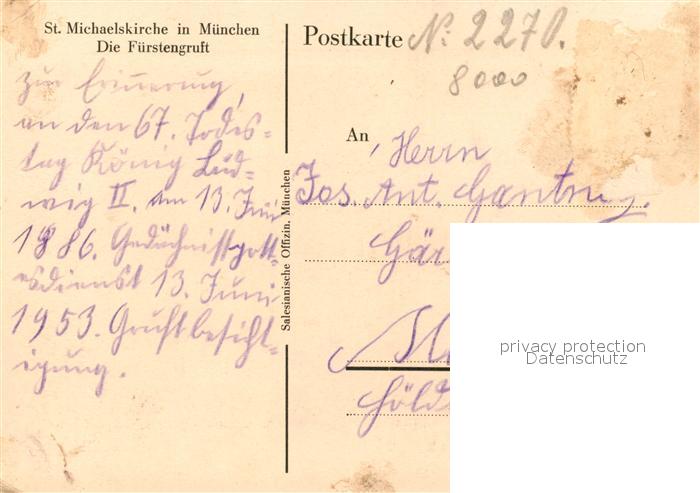 St. Michaelskirche in München
Die Fürstengruft
zur Erinnerung
an den 67. Todes=
tag König Lud=
wig II. am 13. Juni
1886. Gedächnissgott=
esdienst 13. Juni
1953. Gruftbesicht=
igung.
Salesianische Offizin, München
Postkarte
No: 2270.
8000
An
Herrn
Jos. Ant.
privacy protection
Datenschutz